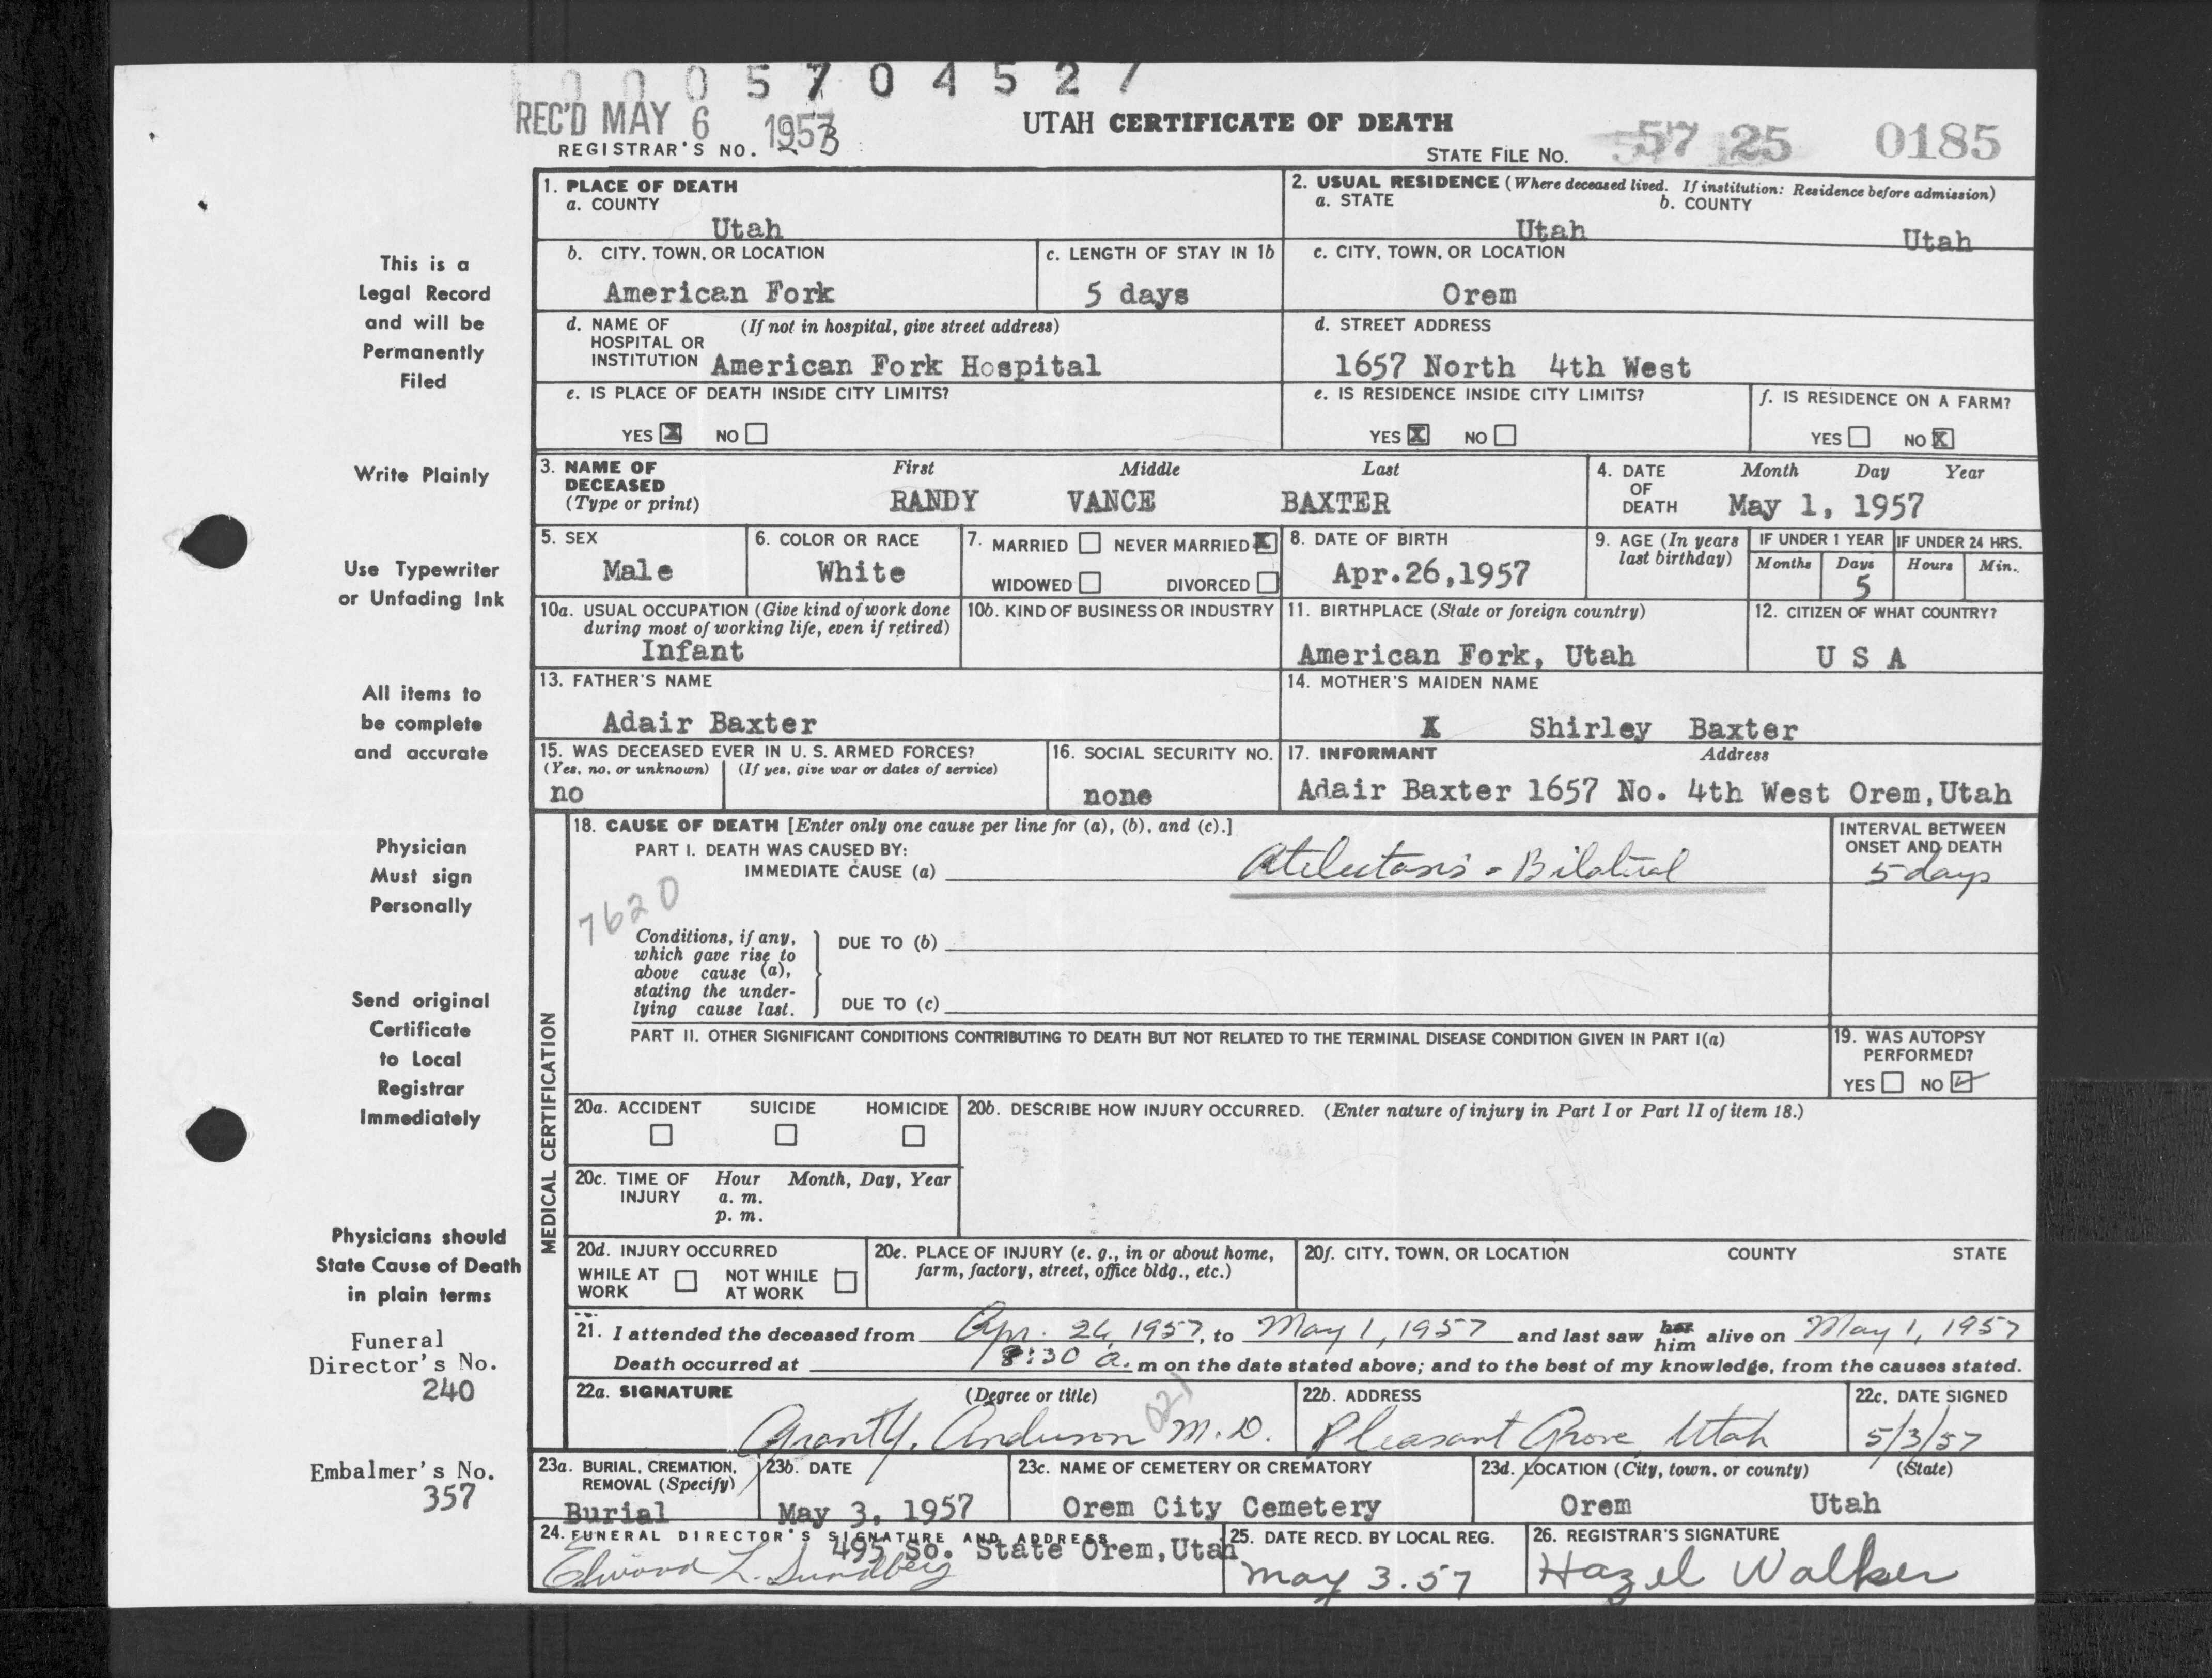 0 0 0 5 7 0 4 5 2 7
REC'D MAY 6 1957
UTAH CERTIFICATE OF DEATH
REGISTRAR'S NO.
STATE FILE NO. 57 25 0185
This is a
Legal Record
and will be
Permanently
Filed
Write Plainly
Use Typewriter
or Unfading Ink
All items to
be complete
and accurate
Physician
Must sign
Personally
Send original
Certificate
to Local
Registrar
Immediately
Physicians should
State Cause of Death
in plain terms
Funeral
Director's No.
240
Embalmer's No.
357
1. PLACE OF DEATH
a. COUNTY
Utah
2. USUAL RESIDENCE (Where deceased lived. If institution: Residence before admission)
a. STATE b. COUNTY
Utah Utah
b. CITY, TOWN, OR LOCATION
American Fork
c. LENGTH OF STAY IN 1b
5 days
c. CITY, TOWN, OR LOCATION
Orem
d. NAME OF (If not in hospital, give street address)
HOSPITAL OR
INSTITUTION American Fork Hospital
d. STREET ADDRESS
1657 North 4th West
e. IS PLACE OF DEATH INSIDE CITY LIMITS?
YES X NO
e. IS RESIDENCE INSIDE CITY LIMITS?
YES X NO
f. IS RESIDENCE ON A FARM?
YES NO X
3. NAME OF First Middle Last
DECEASED
(Type or print) RANDY VANCE BAXTER
4. DATE Month Day Year
OF
DEATH May 1, 1957
5. SEX
Male
6. COLOR OR RACE
White
7. MARRIED NEVER MARRIED X
WIDOWED DIVORCED
8. DATE OF BIRTH
Apr.26,1957
9. AGE (In years
last birthday)
IF UNDER 1 YEAR IF UNDER 24 HRS.
Months Days Hours Min.
5
10a. USUAL OCCUPATION (Give kind of work done
during most of working life, even if retired)
Infant
10b. KIND OF BUSINESS OR INDUSTRY
11. BIRTHPLACE (State or foreign country)
American Fork, Utah
12. CITIZEN OF WHAT COUNTRY?
U S A
13. FATHER'S NAME
Adair Baxter
14. MOTHER'S MAIDEN NAME
X Shirley Baxter
15. WAS DECEASED EVER IN U. S. ARMED FORCES?
(Yes, no, or unknown) (If yes, give war or dates of service)
no
16. SOCIAL SECURITY NO.
none
17. INFORMANT Address
Adair Baxter 1657 No. 4th West Orem,Utah
MEDICAL CERTIFICATION
18. CAUSE OF DEATH [Enter only one cause per line for (a), (b), and (c).]
PART I. DEATH WAS CAUSED BY:
IMMEDIATE CAUSE (a) Atelectasis - Bilateral
INTERVAL BETWEEN
ONSET AND DEATH
5 days
7620
Conditions, if any,
which gave rise to
above cause (a),
stating the under-
lying cause last.
DUE TO (b)
DUE TO (c)
PART II. OTHER SIGNIFICANT CONDITIONS CONTRIBUTING TO DEATH BUT NOT RELATED TO THE TERMINAL DISEASE CONDITION GIVEN IN PART I(a)
19. WAS AUTOPSY
PERFORMED?
YES NO ✓
20a. ACCIDENT SUICIDE HOMICIDE
20b. DESCRIBE HOW INJURY OCCURRED. (Enter nature of injury in Part I or Part II of item 18.)
20c. TIME OF Hour Month, Day, Year
INJURY a. m.
p. m.
20d. INJURY OCCURRED
WHILE AT NOT WHILE
WORK AT WORK
20e. PLACE OF INJURY (e. g., in or about home,
farm, factory, street, office bldg., etc.)
20f. CITY, TOWN, OR LOCATION COUNTY STATE
21. I attended the deceased from Apr. 26, 1957, to May 1, 1957 and last saw her him alive on May 1, 1957
Death occurred at 8:30 a. m on the date stated above; and to the best of my knowledge, from the causes stated.
22a. SIGNATURE (Degree or title)
Grant Y. Anderson M.D.
021
22b. ADDRESS
Pleasant Grove, Utah
22c. DATE SIGNED
5/3/57
23a. BURIAL, CREMATION,
REMOVAL (Specify)
Burial
23b. DATE
May 3, 1957
23c. NAME OF CEMETERY OR CREMATORY
Orem City Cemetery
23d. LOCATION (City, town, or county) (State)
Orem Utah
24. FUNERAL DIRECTOR'S SIGNATURE AND ADDRESS
495 So. State Orem,Utah
Elwood L. Sundberg
25. DATE RECD. BY LOCAL REG.
May 3.57
26. REGISTRAR'S SIGNATURE
Hazel Walker